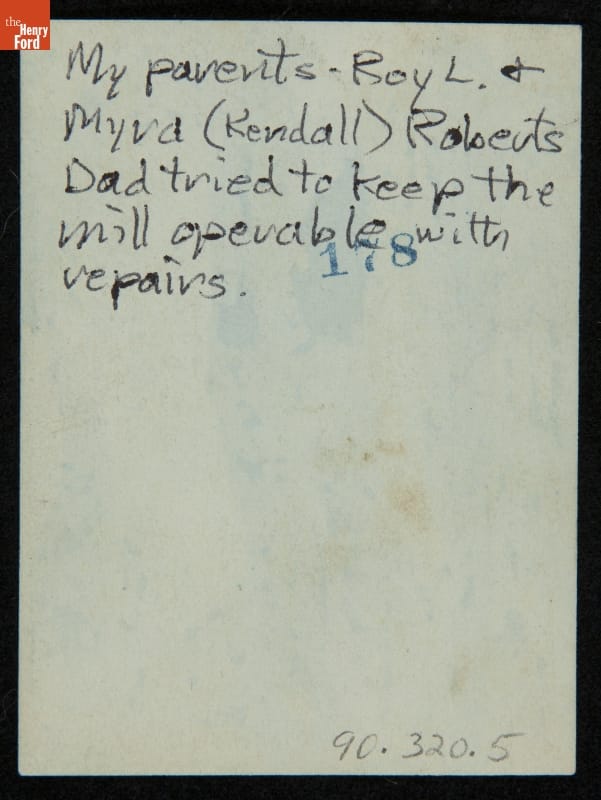 the
Henry
Ford
My parents - Roy L. &
Myra (Kendall) Roberts
Dad tried to keep the
mill operable with
178
repairs.
90.320.5